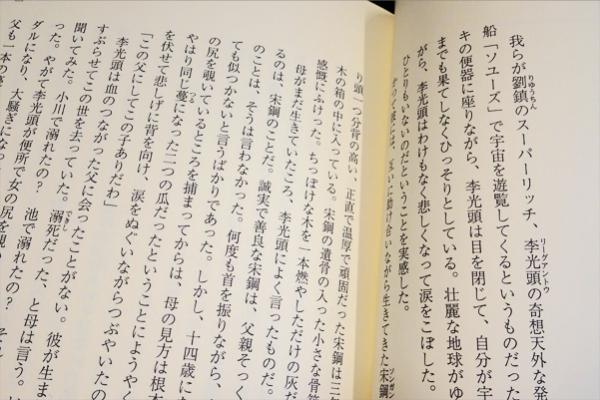 我らが劉鎮のスーパーリッチ、李光頭の奇想天外な発
船「ソユーズ」で宇宙を遊覧してくるというものだった
キの便器に座りながら、李光頭は目を閉じて、自分が宇
までも果てしなくひっそりとしている。壮麗な地球がゆ
がら、李光頭はわけもなく悲しくなって涙をこぼした。
ひとりもいないのだということを実感した。
互いに助け合いながら生きてきた宋鋼
り頭一つ分背の高い、正直で温厚で頑固だった宋鋼は三年
木の箱の中に入っている。宋鋼の遺骨の入った小さな骨箱
感慨にふけった。ちっぽけな木を一本燃やしただけの灰だ
母がまだ生きていたころ、李光頭によく言ったものだ。
るのは、宋鋼のことだ。誠実で善良な宋鋼は、父親そっく
のことは、そうは言わなかった。何度も首を振りながら、
ても似つかないと言うばかりであった。しかし、十四歳にな
の尻を覗いているところを捕まってからは、母の見方は根本
やはり同じ蔓になった二つの瓜だったということにようやく
を伏せて悲しげに背を向け、涙をぬぐいながらつぶやいたの
「この父にしてこの子ありだわ」
李光頭は血のつながった父に会ったことがない。彼が生ま
すぶらせてこの世を去っていた。溺死だった、と母は言う。
聞いてみた。小川で溺れたの？　池で溺れたの？
った。やがて李光頭が便所で女の尻を覗
ダルになり、大騒ぎになっ
父も一本の